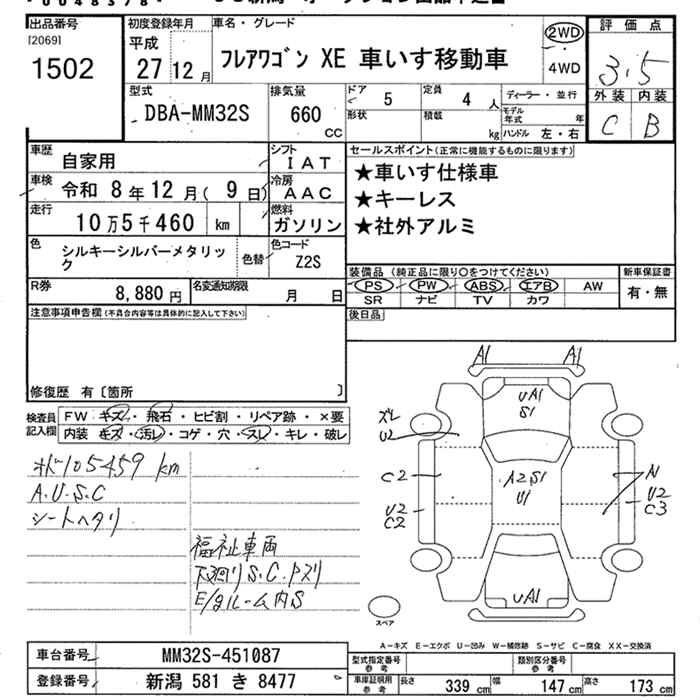 出品番号 初度登録年月 車名・グレード 評価点
[2069] 平成 2WD
1502 27 12月 フレアワゴン XE 車いす移動車 4WD 3.5
型式 排気量 ドア 定員 ディーラー・並行 外装 内装
DBA-MM32S 660 5 4 人 モデル年式 年 C B
CC 形状 積載 kg ハンドル 左・右
車歴 自家用 シフト IAT セールスポイント(正常に機能するものに限ります)
車検 令和 8年12月(9日) 冷房 AAC ★車いす仕様車
走行 10万5千460 km 燃料 ガソリン ★キーレス
★社外アルミ
色 シルキーシルバーメタリック 色替 色コード Z2S
装備品(純正品に限り○をつけてください) 新車保証書
R券 8,880円 名変通知期限 月 日 PS PW ABS エアB AW 有・無
SR ナビ TV カワ
注意事項申告欄(不具合内容等は具体的に記入して下さい) 後日品
修復歴 有〔箇所 〕
検査員 FW キズ・飛石・ヒビ割・リペア跡・×要
記入欄 内装 キズ・汚レ・コゲ・穴・スレ・キレ・破レ
105459 km
A.U.S.C
シートヘタリ
福祉車両
下廻りS.C.
E/gルーム内S
A1 A1
UA1
S1
ズレ
U2
C2 A2 S1
U1
U2
C2
U2
C3
UA1
スペア
A-キズ E-エクボ U-凹み W-補修跡 S-サビ C-腐食 XX-交換済
車台番号 MM32S-451087 型式指定番号 参考 類別区分番号 参考
登録番号 新潟 581 き 8477 車庫証明用 参考 長さ 339 cm 幅 147 cm 高さ 173 cm